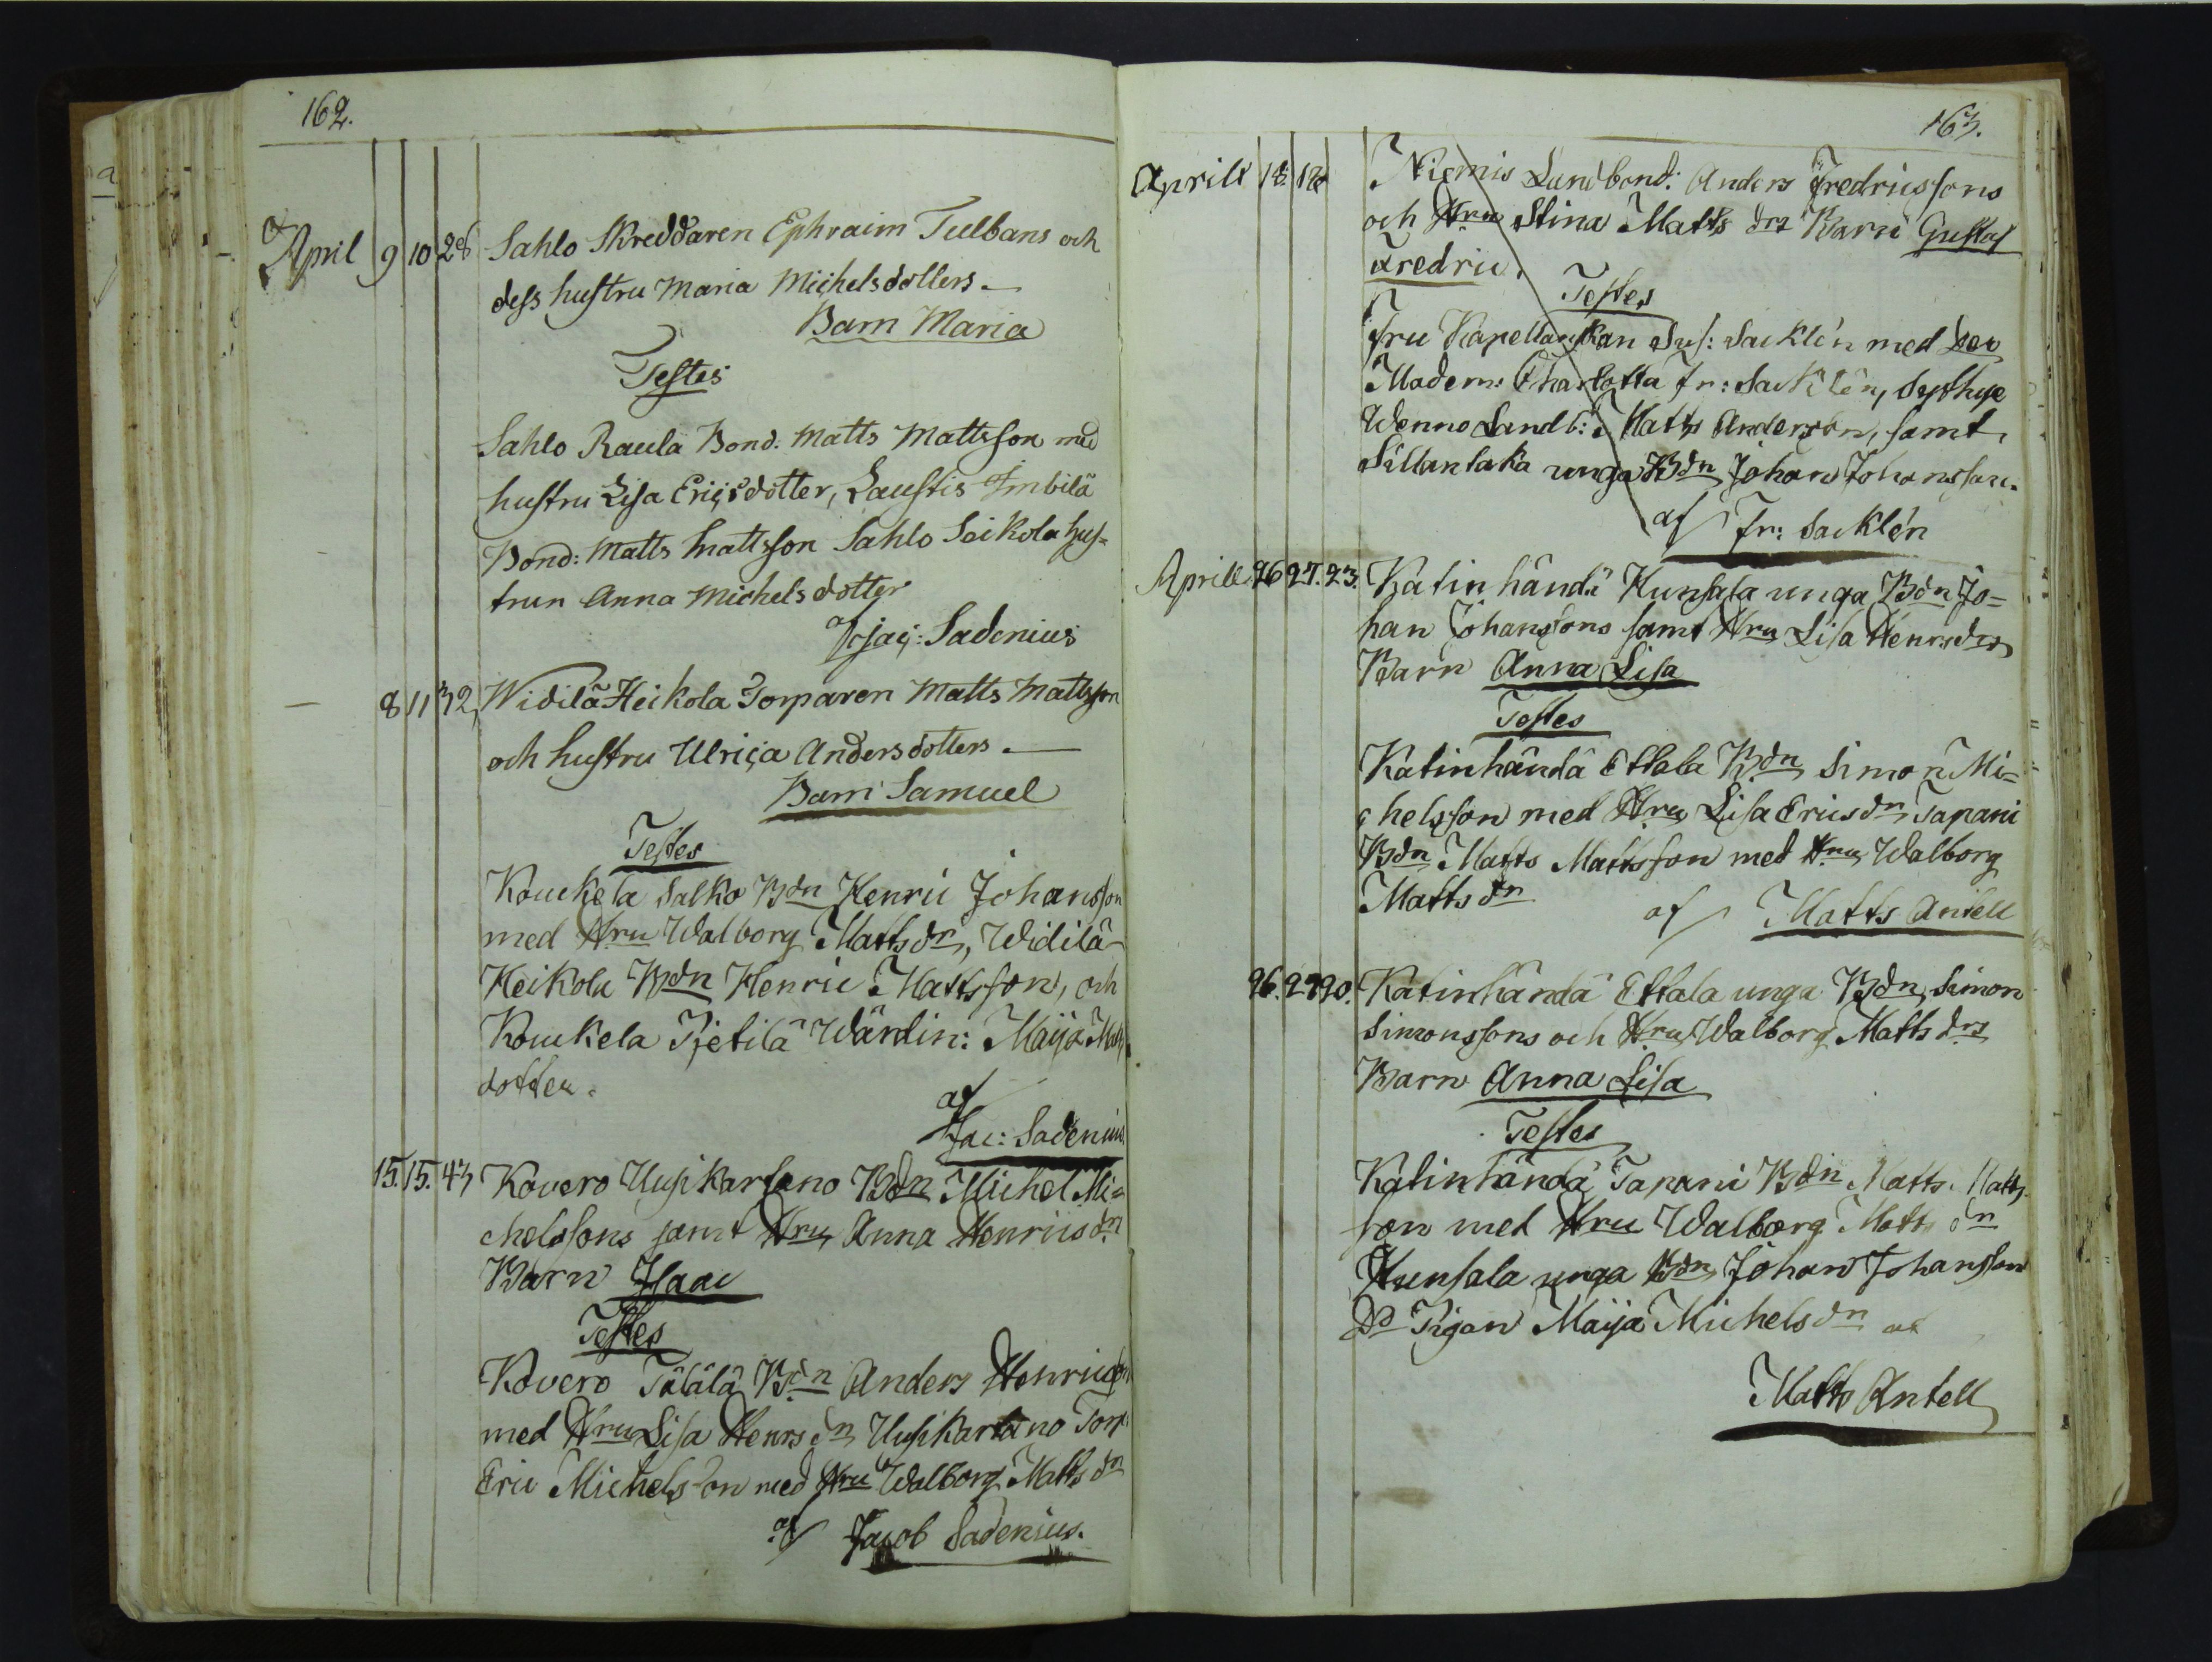 162.
April 9 10 26 Sahlo Skreddaren Ephraim Tulbans och
dess hustru Maria Michelsdotters
Barn Maria
Testes
Sahlo Raula Bond. Matts Mattsson med
hustru Lisa Ericsdotter, Laustis Imbilä
Bond: Matts Mattsson Sahlo Seikola hus=
trun Anna Michelsdotter
af Jac: Sadenius
8 11 32, Widilä Heikola Torparen Matts Mattsson
och hustru Ulrica Andersdotters
Barn Samuel
Testes
Kouckela Salko Bdn Henric Johansson
med Hru Walborg Mattsdr, Widilä
Heikola Bdn Henric Mattsson, och
Kouckela Pietilä Wärdin: Maija Matts
dotter.
af
Jac: Sadenius
15. 15. 43 Kovero Uusikartano Bdn Michel Mi=
chelssons samt Hru Anna Henricsdr
Barn Isaac
Testes
Kovero Tälälä Bdn Anders Henricson
med Hru Lisa Henrsdr Uusikartano Torp:
Eric Michelsson med Hru Walborg Mattsdr
af Jacob Sadenius.
163.
Aprill 18 18 Niemis Landbond: Anders Fredricssons
och Hru Stina Mattsdrs Barn Gustaf
Fredric.
Testes
Fru Kapellanskan Sus: Sacklén med
Madem: Charlotta Fr: Sacklén,
Wenno Landb: Matts Andersson, samt
Sillanlaka unga Bdn Johan Johansson.
af Fr: Sacklén
Aprill 26 27. 23. Katinhändä Hunsala unga Bdn Jo=
han Johanssons samt Hru Lisa Henrsdrs
Barn Anna Lisa
Testes
Katinhändä Ettala Bdn Simon Mi=
chelsson med Hru Lisa Ericsdr Tapani
Bdn Matts Mattsson med Hru Walborg
Mattsdr
af Matts Antell
26. 27 20. Katinhändä Ettala unga Bdn Simon
Simonssons och Hru Walborg Mattsdrs
Barn Anna Lisa
Testes
Katinhändä Tapani Bdn Matts Matts
son med Hru Walborg Mattsdr
Hunsala unga Bdn Johan Johansson
Do Pigan Maija Michelsdr af
Matts Antell